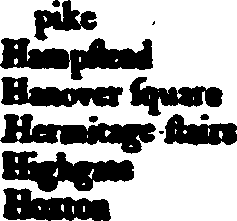 pike
Hampſtead
Hanover ſquare
Hermitage-ſtairs
Highgate
Hoxton